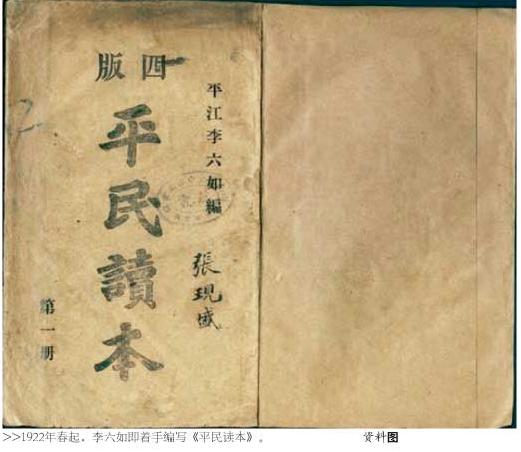 四版
平江李六如編
平民讀本
張現盛
第一册
>>1922年春起，李六如即着手编写《平民读本》。
资料图